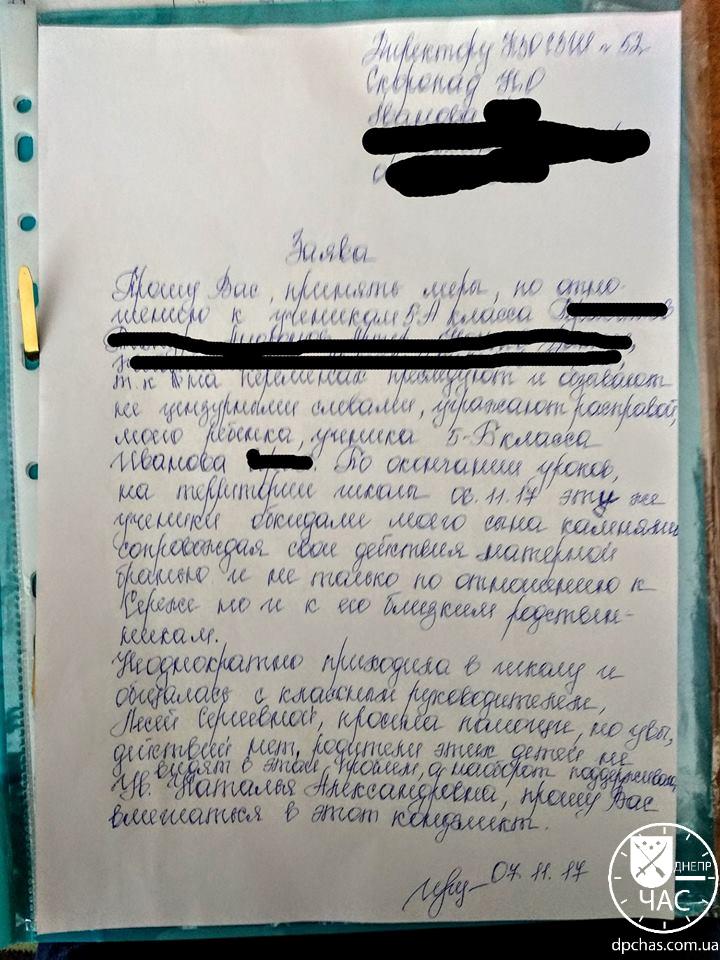 Директору НЗОСШ № 52
Скоропад Н.О
Иванова
Заява
Прошу Вас, принять меры, по отно-
шению к ученикам 5-А класса
т.к на переменах преследуют и обзывают
не цензурными словами, угражают расправой,
моего ребёнка, ученика 5-В класса
Иванова По окончании уроков,
на территории школы 06.11.17 эти же
ученики обкидали моего сына камнями
сопровождая свои действия матерной
бранью и не только по отношению к
Сереже но и к его близким родствен-
никам.
Неоднократно приходила в школу и
общалась с классным руководителем,
Лесей Сергеевной, просила помощи, но увы,
действий нет, родители этих детей не
видят в этом проблем, а наоборот поддерживают
Ув. Наталья Александровна, прошу Вас
вмешаться в этот конфликт.
07.11.17
ДНЕПР
ЧАС
dpchas.com.ua